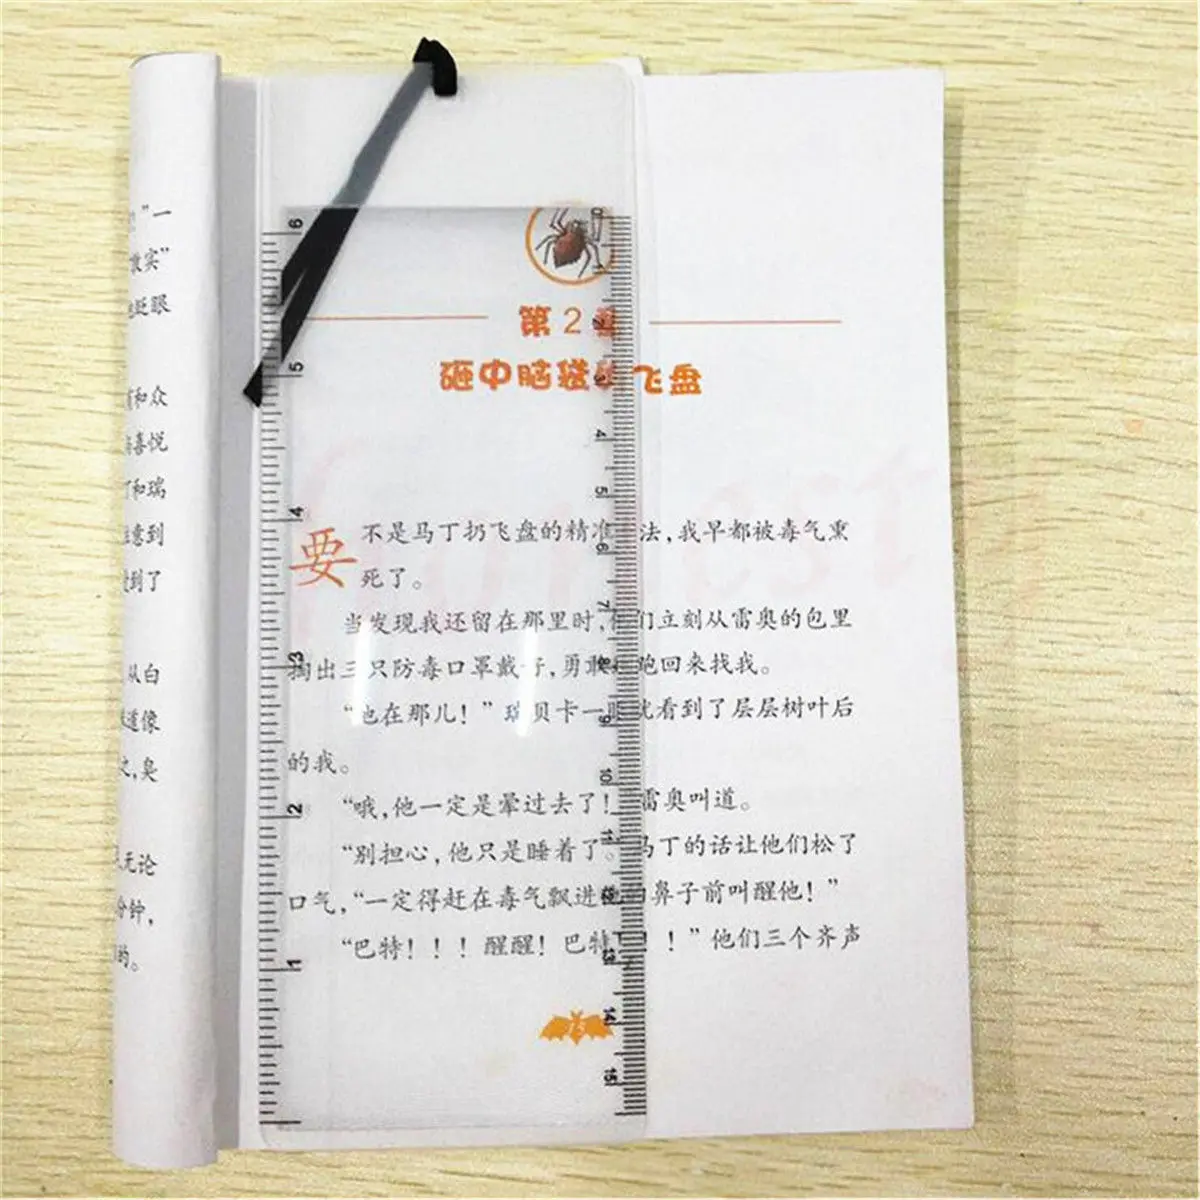 ”一
敢实”
眨眼
和众
喜悦
和瑞
意到
到了
从白
道像
臭
无论
分钟，
的。
6
5
4
3
2
1
0
1
2
3
4
5
6
7
8
9
10
11
12
13
14
15
第2章
砸中脑袋的飞盘
要不是马丁扔飞盘的精准 法，我早都被毒气熏
死了。
当发现我还留在那里时，他们立刻从雷奥的包里
掏出三只防毒口罩戴好，勇敢 跑回来找我。
“他在那儿！”瑞贝卡一 就看到了层层树叶后
的我。
“哦，他一定是晕过去了！ 雷奥叫道。
“别担心，他只是睡着了。 马丁的话让他们松了
口气，“一定得赶在毒气飘进他的鼻子前叫醒他！”
“巴特！！！醒醒！巴特！！！”他们三个齐声